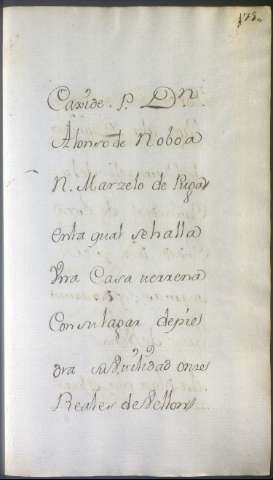 Caride. P. Dn.
Alonso de Noboa
N. Marzelo de Puga
enla qual sehalla
Vna Casa terrena
Con su lagar depie
dra su Vtilidad onse
Reales de Vellon